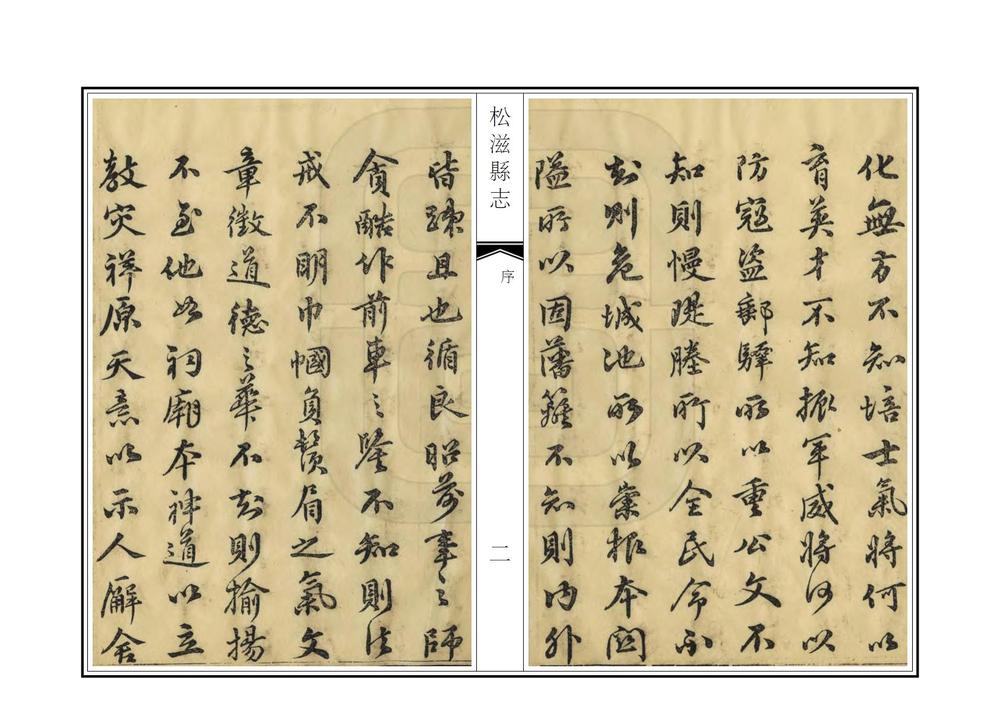 化無方不知培士氣將何以
育英才不知振軍威將何以
防寇盜郵驛所以重公文不
知則慢隄塍所以全民命不
知則危城池所以崇根本關
隘所以固藩籬不知則內外
皆疎且也循良昭前事之師
貪酷作前車之鑒不知則法
戒不明巾幗負鬚眉之氣文
章徵道德之華不知則揄揚
不至他如祠廟本神道以立
教災祥原天意以示人廨舍
松滋縣志
序
二